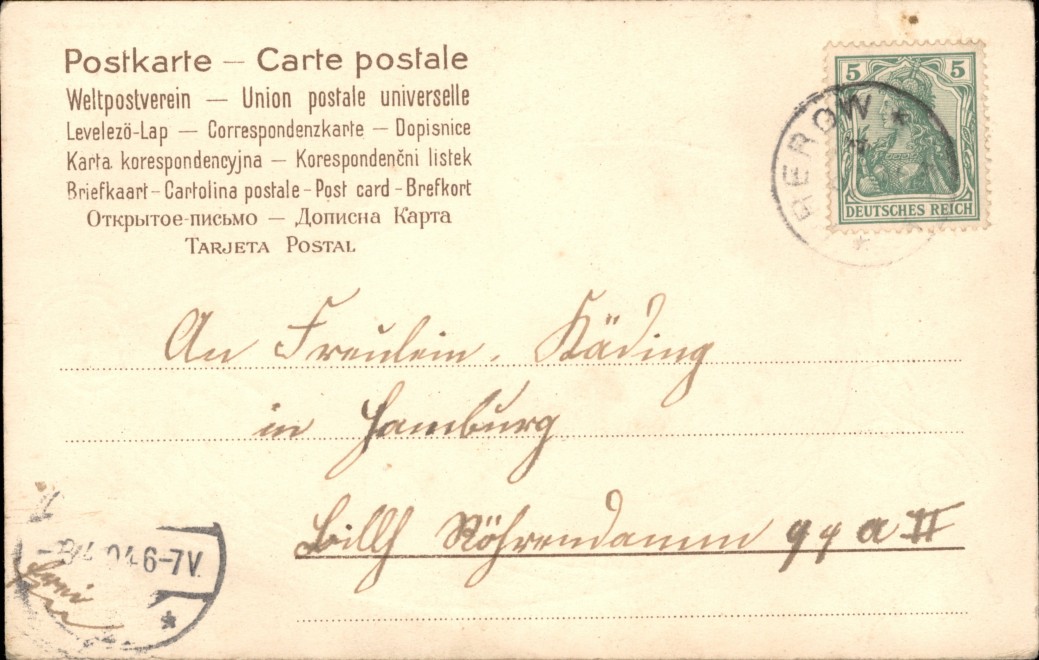 Postkarte – Carte postale
Weltpostverein — Union postale universelle
Levelezö-Lap — Correspondenzkarte — Dopisnice
Karta korespondencyjna — Korespondenčni listek
Briefkaart – Cartolina postale - Post card - Brefkort
Открытое-письмо — Дописна Карта
Tarjeta Postal
5 5
DEUTSCHES REICH
An Freulein. Käding
in Hamburg
Billh Röhrendamm 99 a II
04 6-7V.